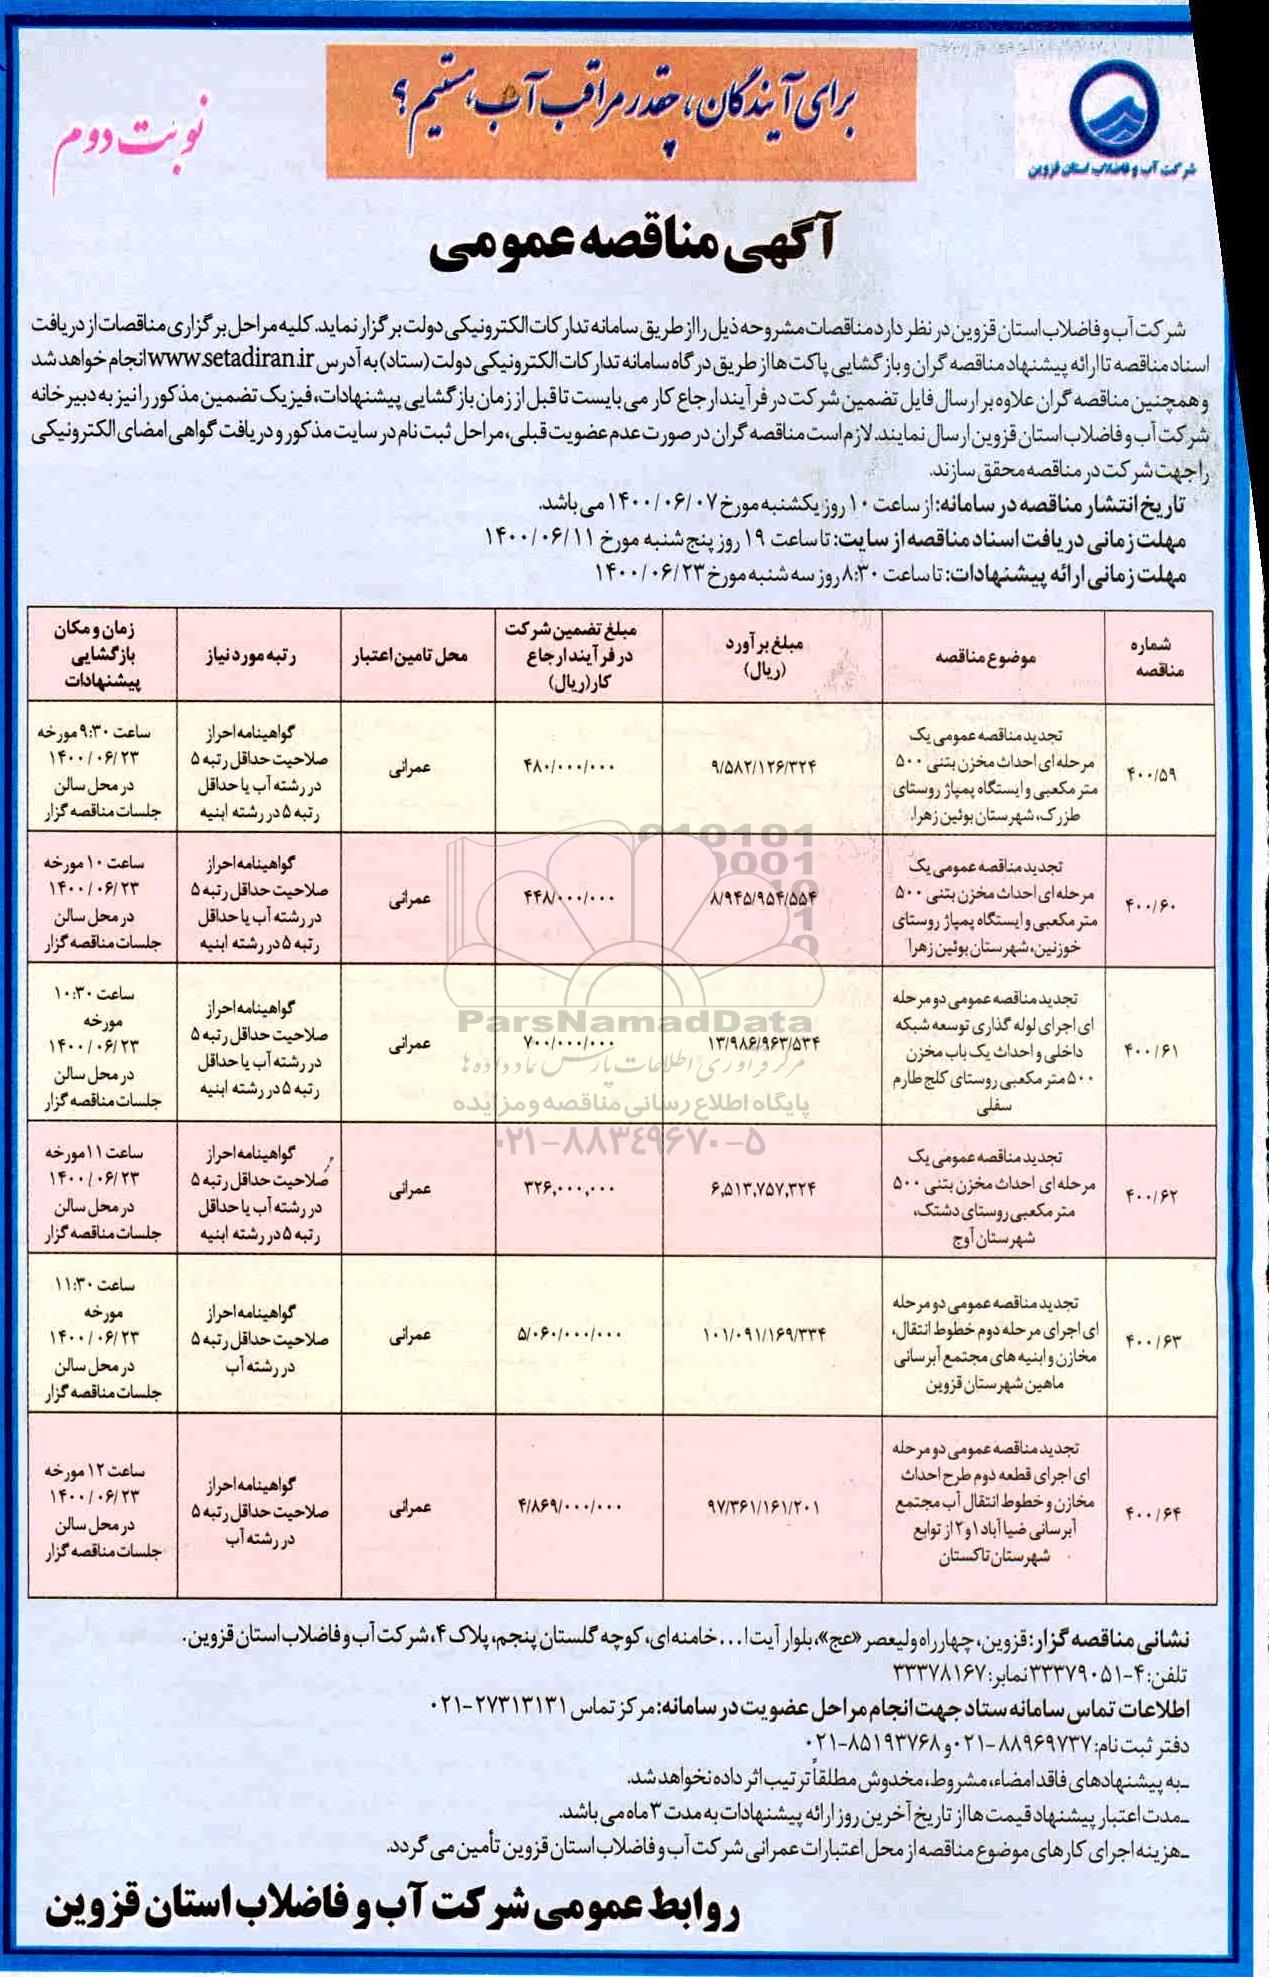 برای آیندگان، چقدر مراقب آب، هستیم؟
نوبت دوم
شرکت آب و فاضلاب استان قزوین
آگهی مناقصه عمومی
شرکت آب و فاضلاب استان قزوین در نظر دارد مناقصات مشروحه ذیل را از طریق سامانه تدارکات الکترونیکی دولت برگزار نماید. کلیه مراحل برگزاری مناقصات از دریافت
اسناد مناقصه تا ارائه پیشنهاد مناقصه گران و بازگشایی پاکت ها از طریق درگاه سامانه تدارکات الکترونیکی دولت (ستاد) به آدرس www.setadiran.ir انجام خواهد شد
و همچنین مناقصه گران علاوه بر ارسال فایل تضمین شرکت در فرآیند ارجاع کار می بایست تا قبل از زمان بازگشایی پیشنهادات، فیزیک تضمین مذکور را نیز به دبیرخانه
شرکت آب و فاضلاب استان قزوین ارسال نمایند. لازم است مناقصه گران در صورت عدم عضویت قبلی، مراحل ثبت نام در سایت مذکور و دریافت گواهی امضای الکترونیکی
را جهت شرکت در مناقصه محقق سازند.
تاریخ انتشار مناقصه در سامانه: از ساعت ۱۰ روز یکشنبه مورخ ۱۴۰۰/۰۶/۰۷ می باشد.
مهلت زمانی دریافت اسناد مناقصه از سایت: تا ساعت ۱۹ روز پنج شنبه مورخ ۱۴۰۰/۰۶/۱۱
مهلت زمانی ارائه پیشنهادات: تا ساعت ۸:۳۰ روز سه شنبه مورخ ۱۴۰۰/۰۶/۲۳
شماره مناقصه
موضوع مناقصه
مبلغ برآورد (ریال)
مبلغ تضمین شرکت در فرآیند ارجاع کار (ریال)
محل تامین اعتبار
رتبه مورد نیاز
زمان و مکان بازگشایی پیشنهادات
۴۰۰/۵۹
تجدید مناقصه عمومی یک
مرحله ای احداث مخزن بتنی ۵۰۰
متر مکعبی و ایستگاه پمپاژ روستای
طزرک، شهرستان بوئین زهرا.
۹/۵۸۲/۱۲۶/۳۲۴
۴۸۰/۰۰۰/۰۰۰
عمرانی
گواهینامه احراز
صلاحیت حداقل رتبه ۵
در رشته آب یا حداقل
رتبه ۵ در رشته ابنیه
ساعت ۹:۳۰ مورخه
۱۴۰۰/۰۶/۲۳
در محل سالن
جلسات مناقصه گزار
۴۰۰/۶۰
تجدید مناقصه عمومی یک
مرحله ای احداث مخزن بتنی ۵۰۰
متر مکعبی و ایستگاه پمپاژ روستای
خوزنین، شهرستان بوئین زهرا
۸/۹۴۵/۹۵۴/۵۵۴
۴۴۸/۰۰۰/۰۰۰
عمرانی
گواهینامه احراز
صلاحیت حداقل رتبه ۵
در رشته آب یا حداقل
رتبه ۵ در رشته ابنیه
ساعت ۱۰ مورخه
۱۴۰۰/۰۶/۲۳
در محل سالن
جلسات مناقصه گزار
۴۰۰/۶۱
تجدید مناقصه عمومی دو مرحله
ای اجرای لوله گذاری توسعه شبکه
داخلی و احداث یک باب مخزن
۵۰۰ متر مکعبی روستای کلج طارم
سفلی
۱۳/۹۸۶/۹۶۳/۵۳۴
۷۰۰/۰۰۰/۰۰۰
عمرانی
گواهینامه احراز
صلاحیت حداقل رتبه ۵
در رشته آب یا حداقل
رتبه ۵ در رشته ابنیه
ساعت ۱۰:۳۰
مورخه
۱۴۰۰/۰۶/۲۳
در محل سالن
جلسات مناقصه گزار
۴۰۰/۶۲
تجدید مناقصه عمومی یک
مرحله ای احداث مخزن بتنی ۵۰۰
متر مکعبی روستای دشتک،
شهرستان آوج
۶,۵۱۳,۷۵۷,۳۲۴
۳۲۶,۰۰۰,۰۰۰
عمرانی
گواهینامه احراز
صلاحیت حداقل رتبه ۵
در رشته آب یا حداقل
رتبه ۵ در رشته ابنیه
ساعت ۱۱ مورخه
۱۴۰۰/۰۶/۲۳
در محل سالن
جلسات مناقصه گزار
۴۰۰/۶۳
تجدید مناقصه عمومی دو مرحله
ای اجرای مرحله دوم خطوط انتقال،
مخازن و ابنیه های مجتمع آبرسانی
ماهین شهرستان قزوین
۱۰۱/۰۹۱/۱۶۹/۳۳۴
۵/۰۶۰/۰۰۰/۰۰۰
عمرانی
گواهینامه احراز
صلاحیت حداقل رتبه ۵
در رشته آب
ساعت ۱۱:۳۰
مورخه
۱۴۰۰/۰۶/۲۳
در محل سالن
جلسات مناقصه گزار
۴۰۰/۶۴
تجدید مناقصه عمومی دو مرحله
ای اجرای قطعه دوم طرح احداث
مخازن و خطوط انتقال آب مجتمع
آبرسانی ضیا آباد ۱و۲ از توابع
شهرستان تاکستان
۹۷/۳۶۱/۱۶۱/۲۰۱
۴/۸۶۹/۰۰۰/۰۰۰
عمرانی
گواهینامه احراز
صلاحیت حداقل رتبه ۵
در رشته آب
ساعت ۱۲ مورخه
۱۴۰۰/۰۶/۲۳
در محل سالن
جلسات مناقصه گزار
ParsNamadData
مرکز فرآوری اطلاعات پارس نماد داده ها
پایگاه اطلاع رسانی مناقصه و مزایده
۰۲۱-۸۸۳۴۹۶۷۰-۵
نشانی مناقصه گزار: قزوین، چهارراه ولیعصر «عج»، بلوار آیت ا... خامنه ای، کوچه گلستان پنجم، پلاک ۴، شرکت آب و فاضلاب استان قزوین.
تلفن: ۴-۳۳۳۷۹۰۵۱ نمابر: ۳۳۳۷۸۱۶۷
اطلاعات تماس سامانه ستاد جهت انجام مراحل عضویت در سامانه: مرکز تماس ۲۷۳۱۳۱۳۱-۰۲۱
دفتر ثبت نام: ۸۸۹۶۹۷۳۷-۰۲۱ و ۸۵۱۹۳۷۶۸-۰۲۱
-به پیشنهادهای فاقد امضاء، مشروط، مخدوش مطلقاً ترتیب اثر داده نخواهد شد.
-مدت اعتبار پیشنهاد قیمت ها از تاریخ آخرین روز ارائه پیشنهادات به مدت ۳ ماه می باشد.
-هزینه اجرای کارهای موضوع مناقصه از محل اعتبارات عمرانی شرکت آب و فاضلاب استان قزوین تأمین می گردد.
روابط عمومی شرکت آب و فاضلاب استان قزوین